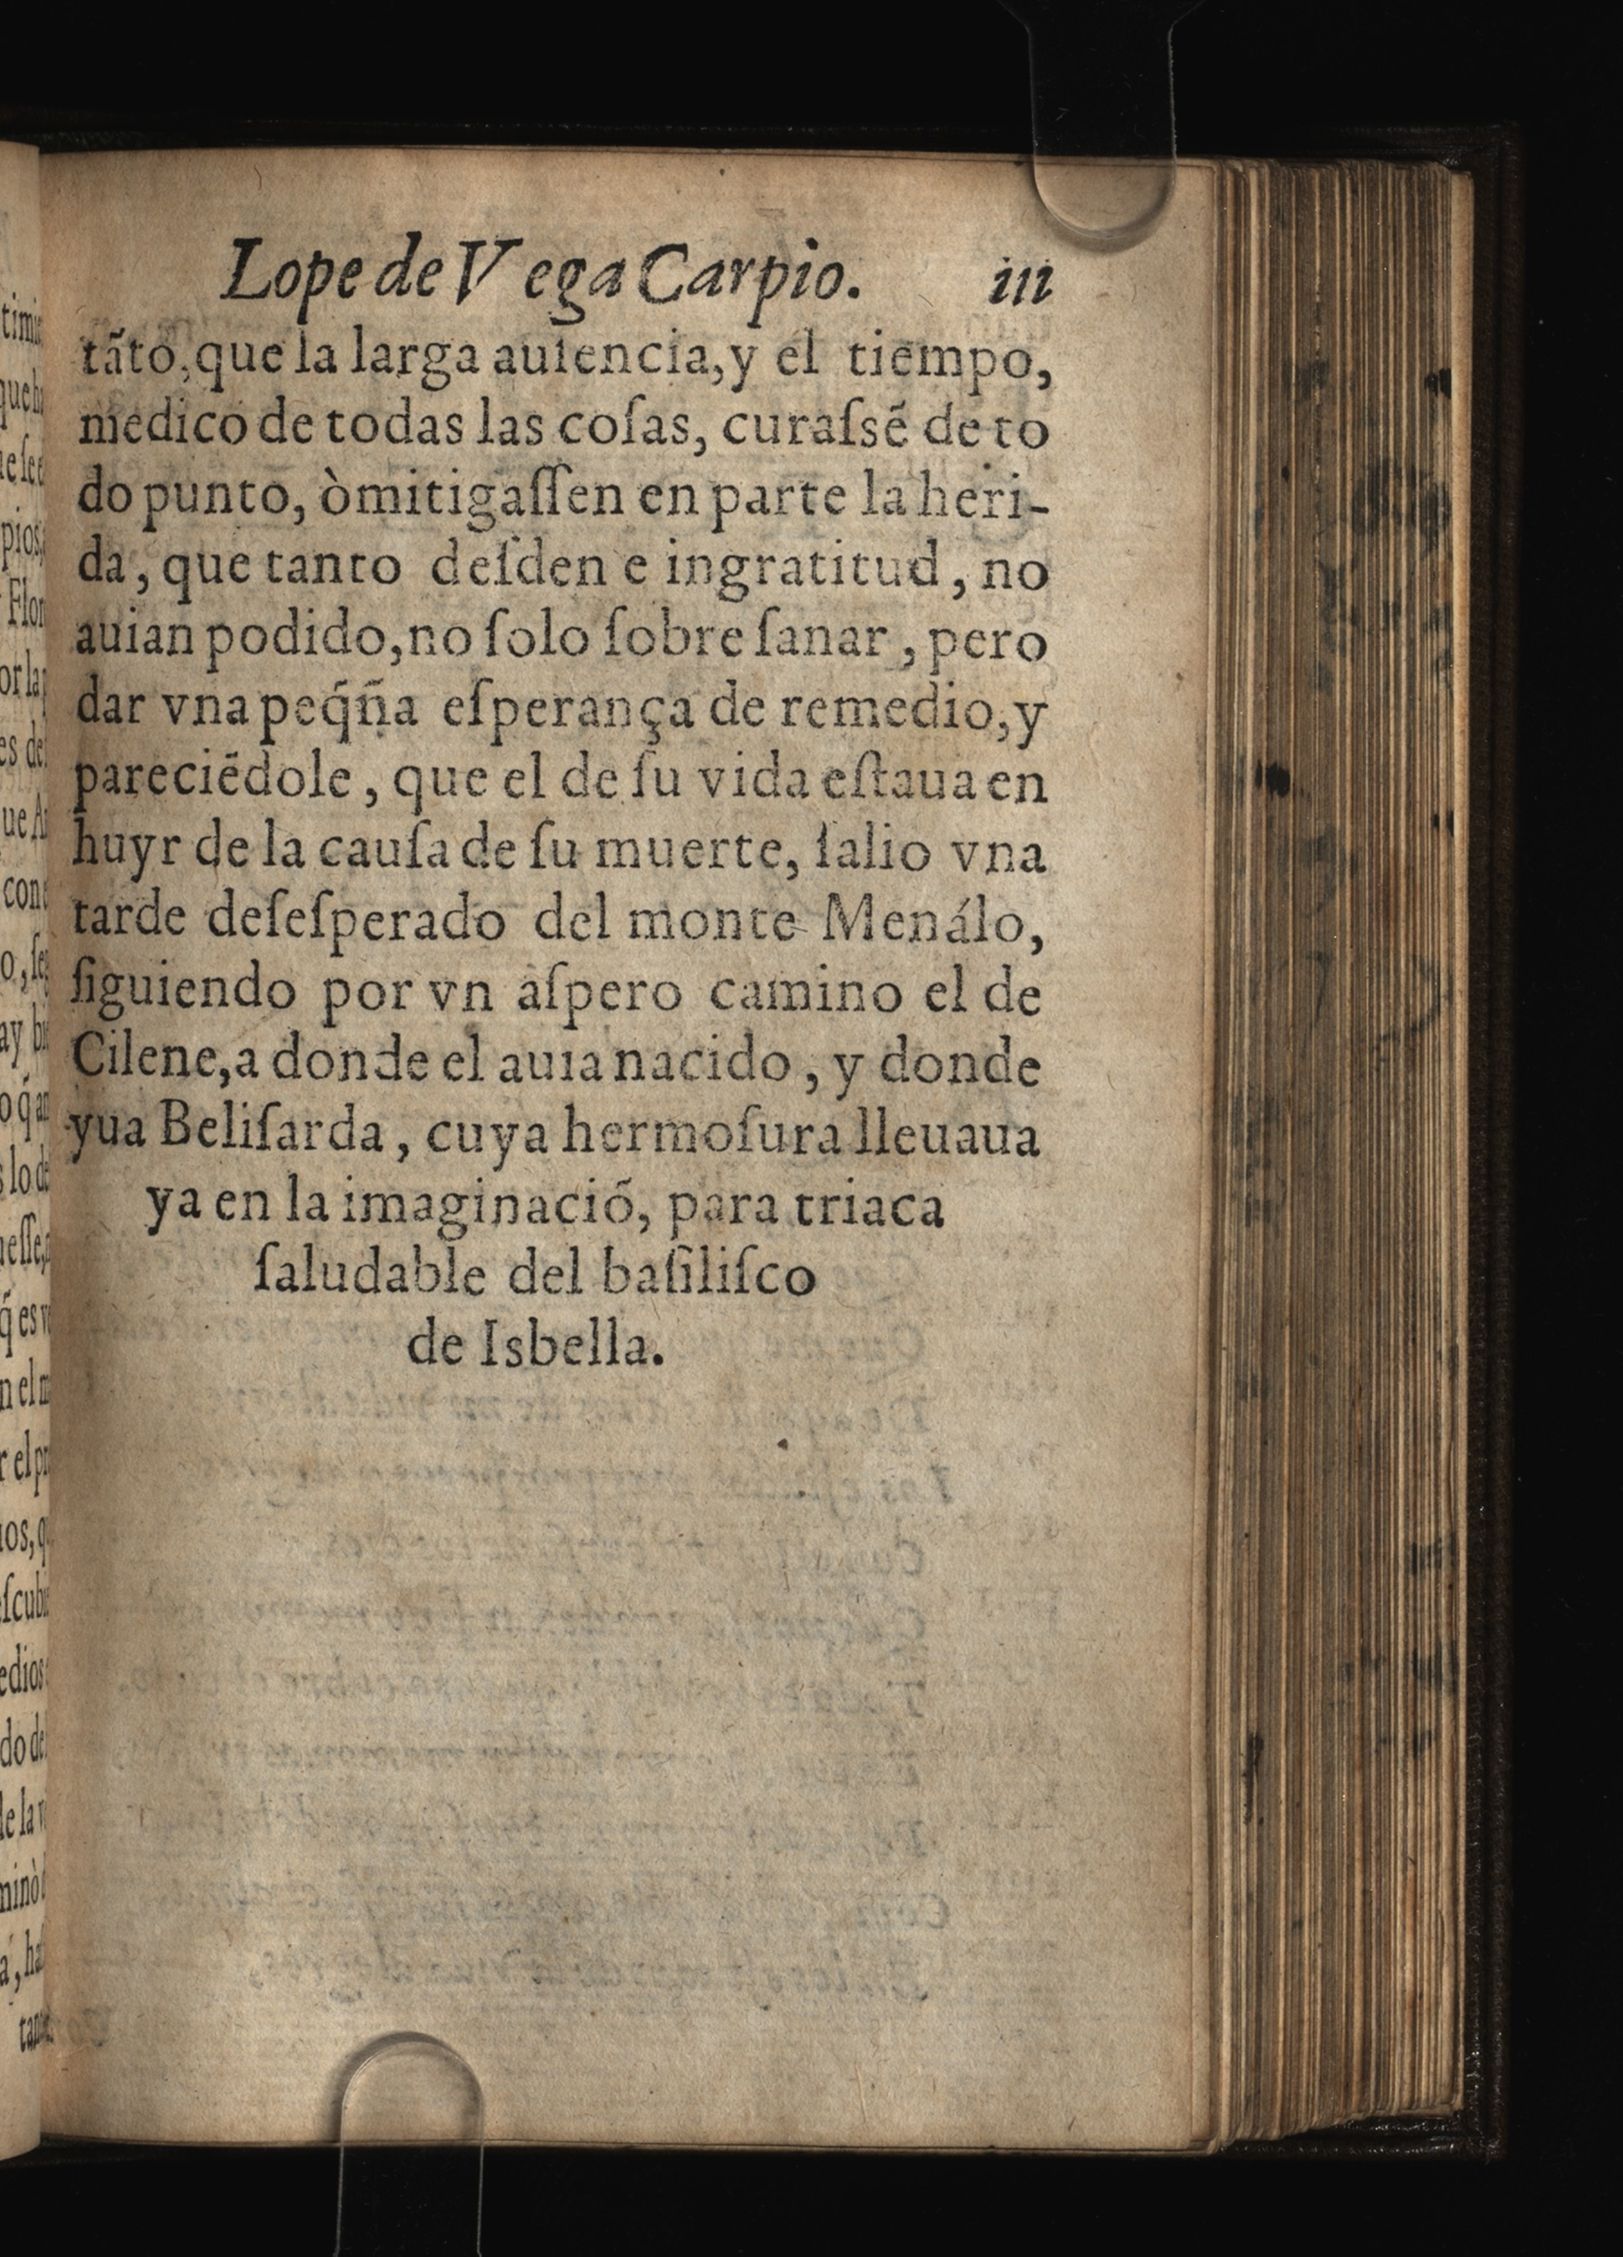 Lope de Vega Carpio. 111
tãto, que la larga auſencia, y el tiempo,
medico de todas las coſas, curaſsẽ de to
do punto, ò mitigaſſen en parte la heri-
da, que tanto deſden e ingratitud, no
auian podido, no ſolo ſobre ſanar, pero
dar vna peq̃ña eſperança de remedio, y
pareciẽdole, que el de ſu vida eſtaua en
huyr de la cauſa de ſu muerte, ſalio vna
tarde deſeſperado del monte Menálo,
ſiguiendo por vn aſpero camino el de
Cilene, a donde el auia nacido, y donde
yua Beliſarda, cuya hermoſura lleuaua
ya en la imaginaciõ, para triaca
ſaludable del baſiliſco
de Isbella.